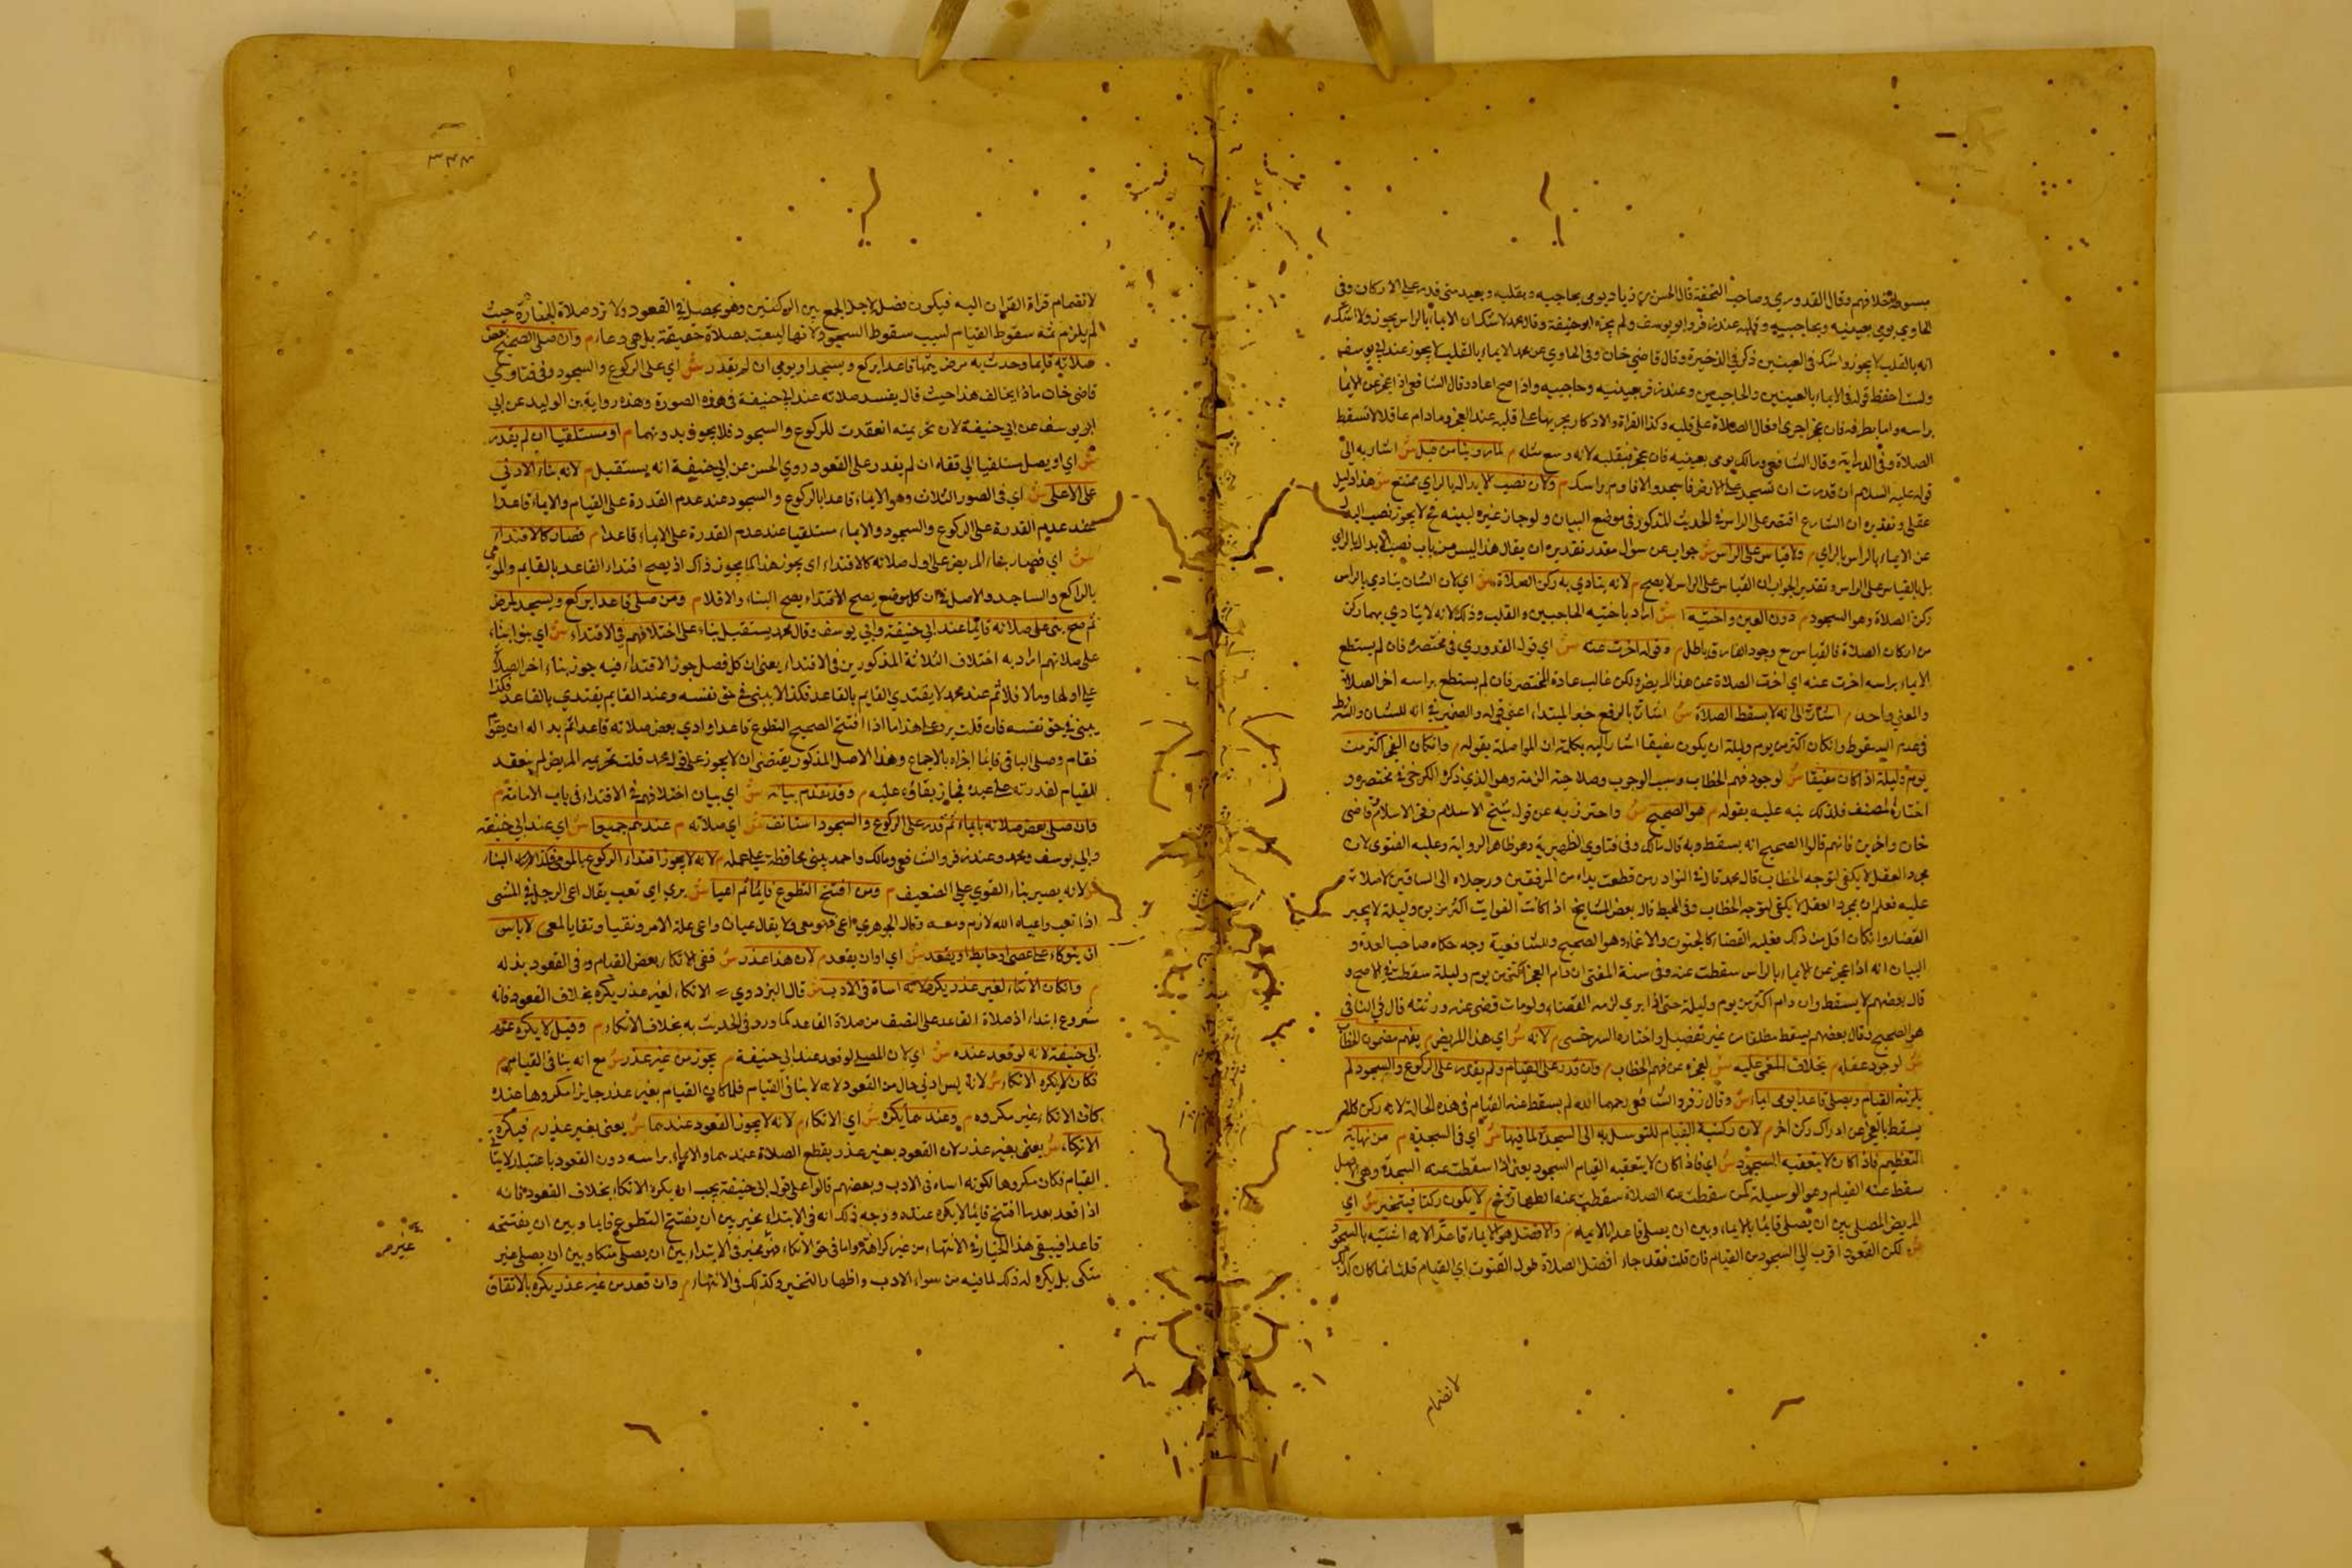 مبسوطة خلافهم وقال القدوري وصاحب التحفة قال الحسن بن زياد يومى بحاجبيه وبقلبه ويعيد متى قدر على الاركان وفى
الحاوي يومى بعينيه وبحاجبيه وقلبه عند زفر وابو يوسف ولم يجزه ابو حنيفة وقال محمد لا اشك ان الايماء بالراس يجوز ولا اشك
انه بالقلب لا يجوز واشك فى العينين ذكره فى الذخيرة وقال قاضي خان وفى الحاوي عن محمد الايماء بالقلب لا يجوز عند ابي يوسف
ولست احفظ قوله فى الايماء بالعينين والحاجبين وعند زفر بعينيه وحاجبيه واذا صح اعاد وقال الشافعي اذا عجز عن الايماء
براسه واما بطرفه فان عجز اجرى افعال الصلاة على قلبه وكذا القراة والاذكار يجريها على قلبه عند العجز وما دام عاقلا لا تسقط
الصلاة وفى الدراية وقال الشافعي ومالك يومى بعينيه فان عجز فبقلبه لانه وسع مثله م لما روينا من قبل ش اشار به الى
قوله عليه السلام ان قدرت ان تسجد على الارض فاسجد والا فاوم براسك م ولان نصب الابدال بالراي ممتنع ش هذا دليل
عقلي وتقديره ان الشارع اقتصر على الراس في الحديث المذكور فى موضع البيان ولو جاز غيره لبينه فح لا يجوز نصب البدل
عن الايماء بالراس بالراي م ولا قياس على الراس ش جواب عن سؤال مقدر تقديره ان يقال هذا ليس من باب نصب الابدال بالراي
بل بالقياس على الراس وتقدير الجواب ان القياس على الراس لا يصح م لانه يتادي به ركن الصلاة ش اي لان الشان يتادي بالراس
ركن الصلاة وهو السجود م دون العين واختيها ش اراد باختيه الحاجبين والقلب وذلك لانه لا يتادي بهما ركن
من اركان الصلاة فالقياس مع وجود الفارق باطل م وقوله اخرت عنه ش اي قول القدوري فى مختصره فان لم يستطع
الايماء براسه اخرت عنه اي اخرت الصلاة عن هذا المريض ولكن غالب عادة المختصر فان لم يستطع براسه اخر الصلاة
والمعنى واحد م اشارة الى انه لا يسقط الصلاة ش اشارة بالرفع خبر المبتداء اعني قوله والضمير في انه للشان والشرط
فى عدم السقوط وان كان اكثر من يوم وليلة ان يكون مفيقا اشار اليه بكلمة ان المواصلة بقوله م وان كان العجز اكثر من
يوم وليلة اذا كان مفيقا ش لوجود فهم الخطاب وسبب الوجوب وصلاحية الذمة وهو الذي ذكره الكرخي فى مختصره و
اختاره المصنف فلذلك نبه عليه بقوله م هو الصحيح ش واحترز به عن قول شيخ الاسلام وفخر الاسلام وقاضى
خان واخرين فانهم قالوا الصحيح انه يسقط وبه قال مالك وفى فتاوي الظهيرية وهو ظاهر الرواية وعليه الفتوى لان
مجرد العقل لا يكفى لتوجه الخطاب قال محمد قال فى النوادر من قطعت يداه من المرفقين ورجلاه الى الساقين لا صلاة
عليه فعلم ان مجرد العقل لا يكفى لتوجه الخطاب وفى المحيط قال بعض المشايخ اذا كانت الفوايت اكثر من يوم وليلة لا يجب
القضاء وان كان اقل من ذلك فعليه القضاء كالجنون والاغماء وهو الصحيح وللشافعية وجه حكاه صاحب العدة و
البيان انه اذا عجز عن الايماء بالراس سقطت عنه وفى منية المفتى ان دام العجز اكثر من يوم وليلة سقطت فى الاصح و
قال بعضهم لا يسقط وان دام اكثر من يوم وليلة حتى اذا برى لزمه القضاء ولو مات قضى عنه ورثته قال في النافى
هو الصحيح وقال بعضهم يسقط مطلقا من غير تفصيل واختاره السرخسى م لانه ش اي هذا المريض م يفهم مضمون الخطاب
ش لوجود عقله م بخلاف المغمى عليه ش لعجزه عن فهم الخطاب م وان قدر على القيام ولم يقدر على الركوع والسجود لم
يلزمه القيام ويصلى قاعدا يومى ايماء ش وقال زفر والشافعي رحمهما الله لم يسقط عنه القيام فى هذه الحالة لانه ركن فلا
يسقط بالعجز عن ادراك ركن اخر م لان ركنية القيام للتوسل به الى السجدة لما فيها ش اي فى السجدة م من نهاية
التعظيم فاذا كان لا يتعقبه السجود ش اي فاذا كان لا يتعقبه القيام السجود يعنى اذا سقطت عنه السجدة وهى الاصل
سقط عنه القيام وهو الوسيلة كمن سقطت عنه الصلاة سقطت عنه الطهارة فح م لا يكون ركنا فيتخير ش اي
المريض المصلى بين ان يصلى قائما بالايماء وبين ان يصلى قاعدا بالايماء م والافضل هو الايماء قاعدا لانه اشبه بالسجود
ش لكن القعود اقرب الى السجود من القيام فان قلت فقد جاء افضل الصلاة طول القنوت اي القيام قلت انما كان كذلك
لانضمام
٣٤٣
لانضمام قراة القران اليه فيكون فضل لاجل الجمع بين الركنين وهو يحصل فى القعود ولا ترد صلاة الجنازة حيث
لم يلزم ثمه سقوط القيام لسبب سقوط السجود لانها ليست بصلاة حقيقة بل هى دعاء م وان صلى الصحيح بعض
صلاته قايما وحدث به مرض يتمها قاعدا يركع ويسجد او يومى ان لم يقدر ش اي على الركوع والسجود وفى فتاوي
قاضى خان ماذا يخالف هذا حيث قال يفسد صلاته عند ابي حنيفة فى هذه الصورة وهذه رواية بن الوليد عن ابي
ابو يوسف عن ابي حنيفة لان تحريمته انعقدت للركوع والسجود فلا يجوز بدونهما م او مستلقيا ان لم يقدر
ش اي او يصلى مستلقيا الى قفاه ان لم يقدر على القعود روي الحسن عن ابي حنيفة انه يستقبل م لانه بناء الادنى
على الاعلى ش اي فى الصور الثلاث وهو الايماء قاعدا بالركوع والسجود عند عدم القدرة على القيام والايماء قاعدا
عند عدم القدرة على الركوع والسجود والايماء مستلقيا عند عدم القدرة على الايماء قاعدا م فصار كالاقتداء
ش اي فصار بناء المريض على اول صلاته كالاقتداء اي يجوز هذا كما يجوز ذاك اذ يصح اقتداء القاعد بالقايم والمومى
بالراكع والساجد والاصل فيه ان كل موضع يصح الاقتداء يصح البناء والا فلا م ومن صلى قاعدا يركع ويسجد لمرض
ثم صح بنى على صلاته قائما عند ابي حنيفة وابي يوسف وقال محمد يستقبل بناء على اختلافهم في الاقتداء ش اي بنوا بناء
على صلاتهم اراد به اختلاف الثلاثة المذكورين فى الاقتداء يعنى ان كل فصل جوز الاقتداء فيه جوز بناء اخر الصلاة
على اولها وما لا فلا ثم عند محمد لا يقتدي القايم بالقاعد فكذا لا يبني في حق نفسه وعند القايم يقتدي بالقاعد فكذا
يبنى في حق نفسه فان قلت يرد على هذا ما اذا افتتح الصحيح التطوع قاعدا وادي بعض صلاته قاعدا ثم بدا له ان يقوم
فقام وصلى الباقى قايما اجزاه بالاجماع وهذا الاصل المذكور يقتضى ان لا يجوز على قول محمد قلت تحريمة المريض لم ينعقد
للقيام لقدرته م وقد تقدم بيانه ش اي بيان اختلافهم في الاقتداء فى باب الامامة م
وان صلى بعض صلاته بايماء ثم قدر على الركوع والسجود استانف ش اي صلاته م عندهم جميعا ش اي عند ابي حنيفة
وابي يوسف ومحمد وعند زفر والشافعي ومالك واحمد يبنى محافظة على عمله م لانه لا يجوز اقتداء الراكع بالمومى فكذا البناء
ش لانه يصير بناء القوي على الضعيف م ومن افتتح التطوع قايما ثم اعيا ش اي تعب يقال اعى الرجل فى المشى
اذا تعب واعياه الله لازم ومتعد وقال الجوهري اعى فهو معى ولا يقال عيان واعى عليه الامر م لا باس
ان يتوكاء على عصى او حايط او يقعد ش اي او ان يقعد م لان هذا عذر ش ففى الاتكاء بعض القيام وفى القعود بدله
م وان كان الاتكاء لغير عذر يكره لانه اساة فى الادب ش قال البزدوي الاتكاء لغير عذر يكره بخلاف القعود فانه
مشروع ابتداء اذ صلاة القاعد على النصف من صلاة القاعد كما ورد فى الحديث به بخلاف الاتكاء م وقيل لا يكره عند
ابي حنيفة لانه لو قعد عنده ش اي لان المصلى لو قعد عند ابي حنيفة م يجوز من غير عذر ش مع انه ينافى القيام م
فكان لا يكره الاتكاء ش لانه ليس ادنى حال من القعود لانه لا ينافى القيام فلما كان القيام بغير عذر جايزا مكروها عنده
كان الاتكاء غير مكروه م وعندهما يكره ش اي الاتكاء م لانه لا يجوز القعود عندهما ش يعنى بغير عذر م فيكره
الاتكاء ش يعنى بغير عذر لان القعود بغير عذر يقطع الصلاة عندهما والايماء براسه دون القعود باعتبار
القيام فكان مكروها لكونه اساء فى الادب وبعضهم قالوا على قول ابي حنيفة يجب ان يكره الاتكاء بخلاف القعود فانه
اذا قعد بعد ما افتتح قايما لا يكره عنده ووجه ذلك انه فى الابتداء مخير بين ان يفتتح التطوع قايما وبين ان يفتتحه
قاعدا فيبقى هذا الخيار فى الانتهاء من غير كراهة واما فى حق الاتكاء فهو مخير فى الابتداء بين ان يصلى متكا وبين ان يصلى غير
متكى بل يكره له ذلك لما فيه من سوء الادب واظهار التخير وكذلك فى الانتهاء م وان قعد من غير عذر يكره بالاتفاق
غير ص